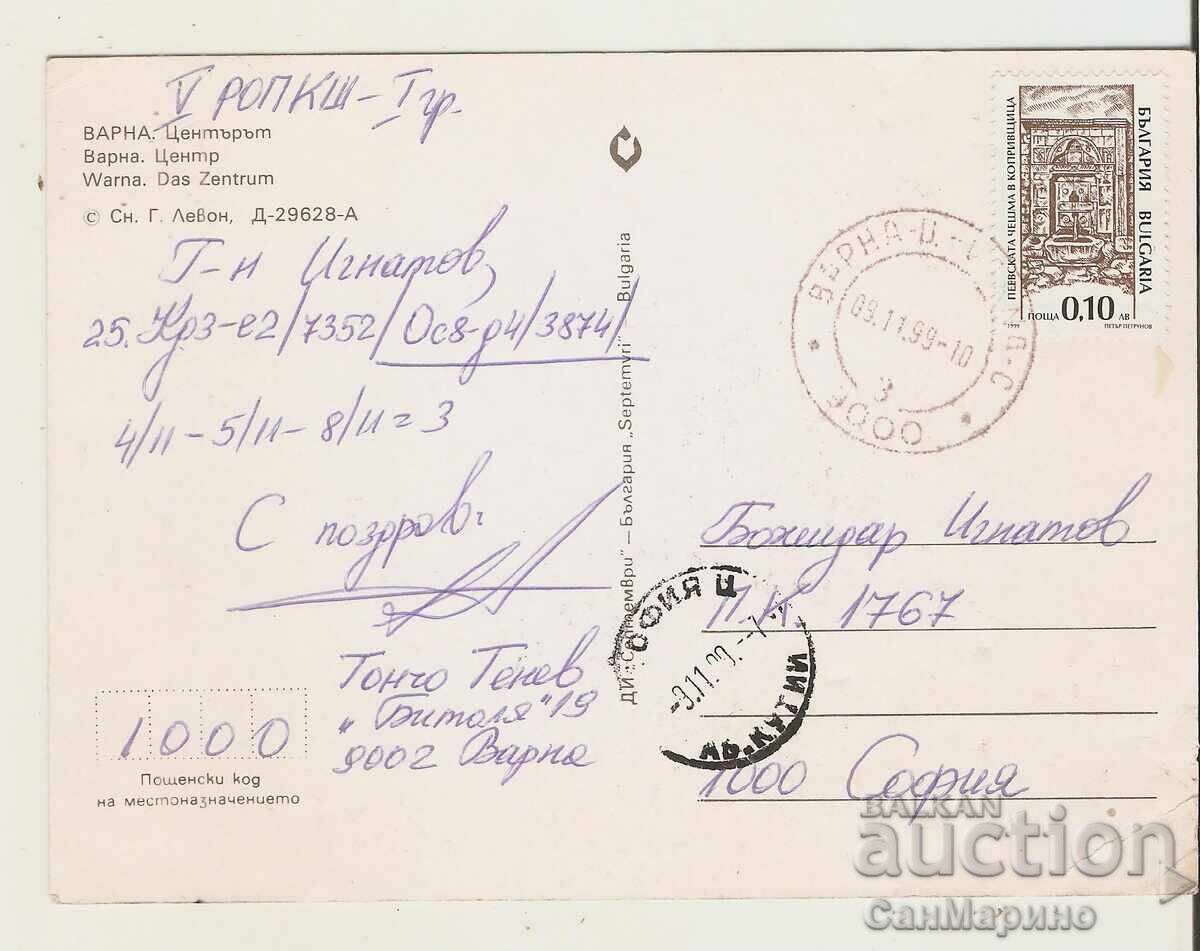 V РОПКШ – I гр.
ВАРНА. Центърът
Варна. Центр
Warna. Das Zentrum
© Сн. Г. Левон, Д-29628-А
Г-н Игнатов,
25. Крз-е2/7352/ Ос8-д4/3874/
4/11 – 5/11 – 8/11 = 3
С поздрав:
Тончо Тенев
„Битоля" 19
9002 Варна
1000
Пощенски код
на местоназначението
ДИ „Септември" — България „Septemvri" Bulgaria
ПЕРВСКАТА ЧЕШМА В КОПРИВЩИЦА
БЪЛГАРИЯ BULGARIA
ПОЩА 0,10 ЛВ
1999 ПЕТЪР ПЕТРУНОВ
ВАРНА-Ц.
09.11.99-10
3
9000
СОФИЯ Ц
-9.11.99.--7
Божидар Игнатов
П.К. 1767
1000 София
BALKAN
auction
СанМарино